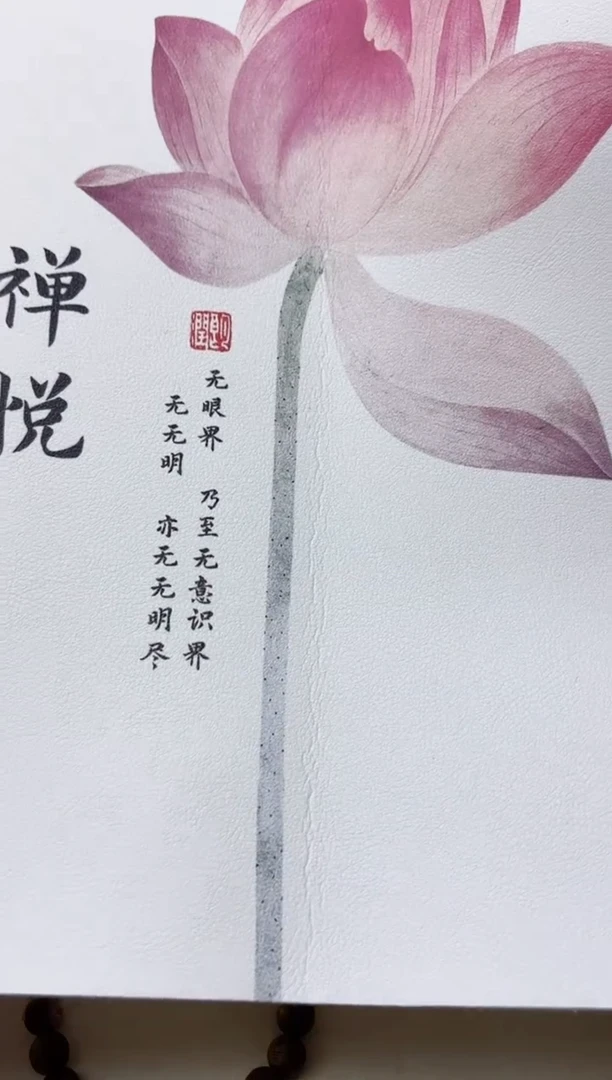 禅悦
无眼界 乃至无意识界
无无明 亦无无明尽